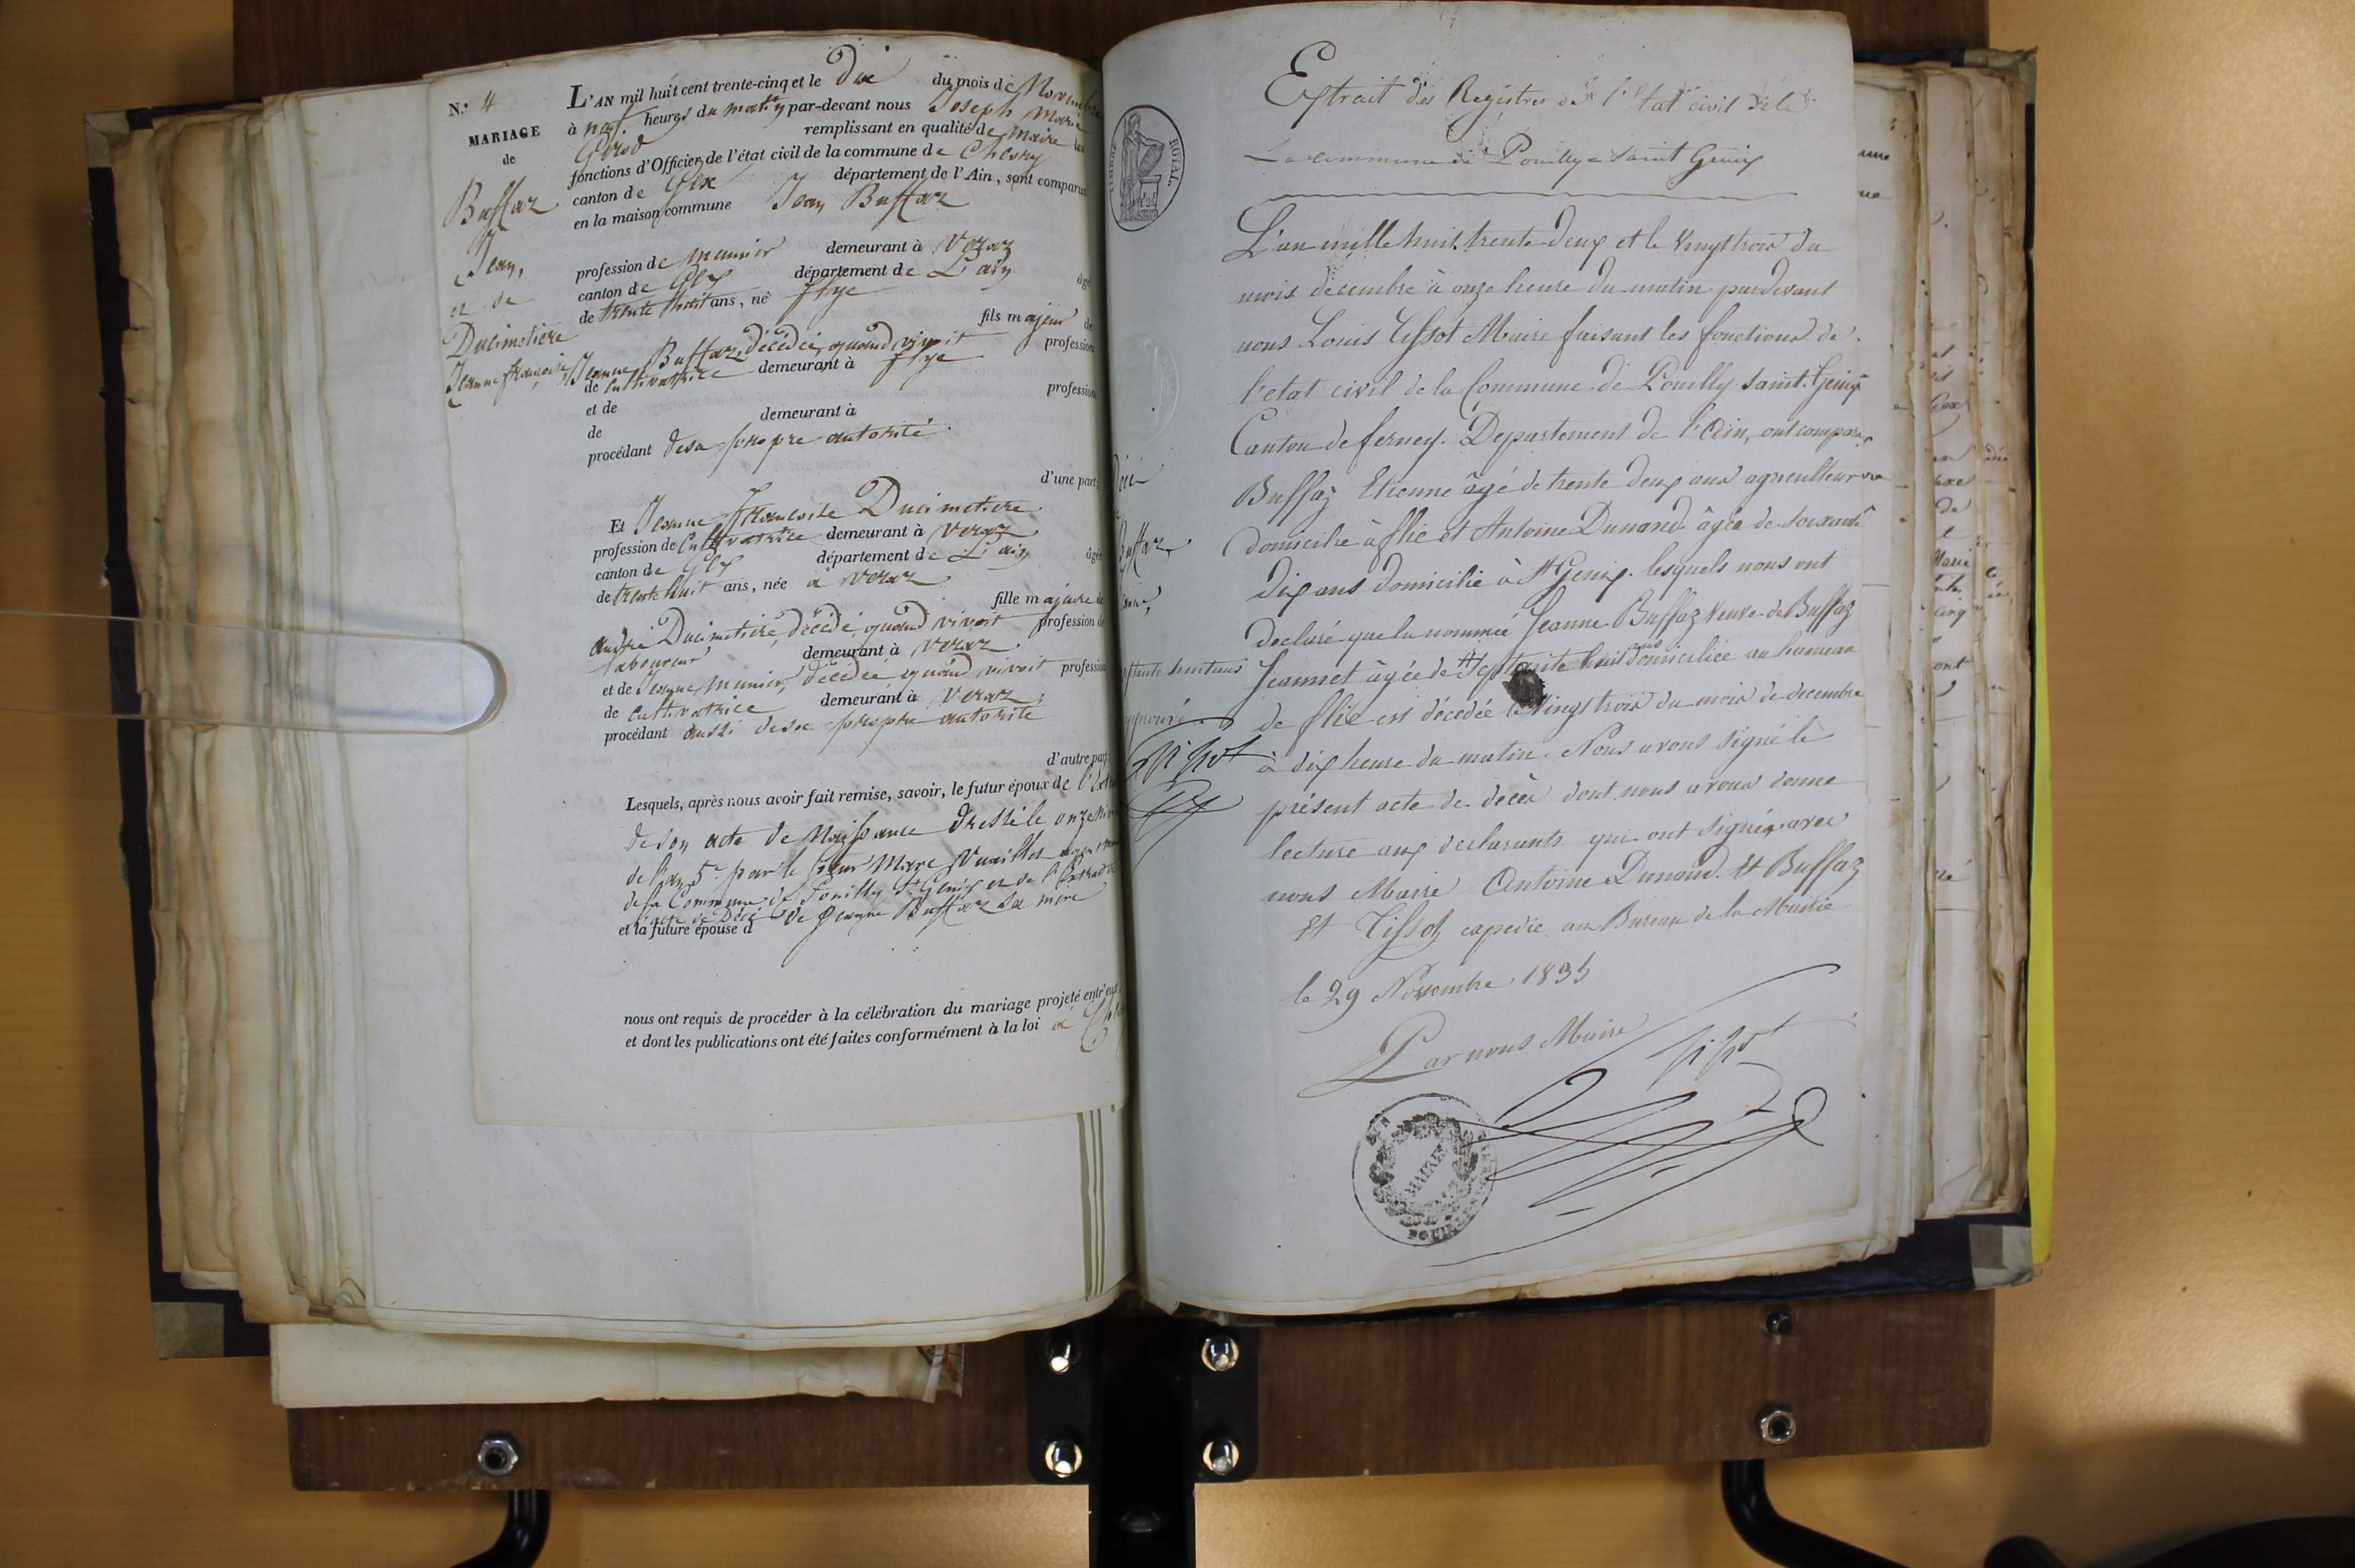 N.° 4
MARIAGE
de
Buffaz
Jean,
et de
Ducimetière
Jeanne françoise
L'AN mil huit cent trente-cinq et le Dix du mois de Novembre
à neuf heures du matin par-devant nous Joseph Marie
Girod remplissant en qualité de Maire les
fonctions d'Officier de l'état civil de la commune de Chevry
canton de Gex département de l'Ain, sont comparus
en la maison commune Jean Buffaz
profession de meunier demeurant à Veraz
canton de Gex département de L'ain âgé
de trente huit ans, né
fils majeur de
Jeanne Buffaz, décédée, quand vivoit profession
de Cultivatrice demeurant à
et de profession
de demeurant à
procédant de sa propre autorité
d'une part;
Et Jeanne Francoise Ducimetiere
profession de Cultivatrice demeurant à Veraz
canton de Gex département de L'ain âgée
de trente huit ans, née à Veraz
fille majeure de
André Ducimetière, décédé, quand vivoit profession de
laboureur demeurant à Veraz
et de Jeanne Munier, décédée, quand vivoit profession
de Cultivatrice demeurant à Veraz;
procédant aussi de sa propre autorité
d'autre part
Lesquels, après nous avoir fait remise, savoir, le futur époux de
de son acte de Naissance dressé le onze
de l'an 5e par le sieur Marc Vuaillet
de la Commune de Pouilly St Genix et de
l'acte de Décé de Jeanne Buffaz sa mère
et la future épouse d
nous ont requis de procéder à la célébration du mariage projeté entr'eux
et dont les publications ont été faites conformément à la loi à
TIMBRE ROYAL
Extrait des Registres de l'Etat civil de la
La commune de Pouilly = Saint Genix
L'an mille huit trente deux et le Vingt trois du
mois decembre à onze heure du matin pardevant
nous Louis Tissot Maire faisant les fonctions de
l'etat civil de la Commune de Pouilly Saint-Genix
Canton de ferney. Departement de l'Ain, ont comparu
Buffaz Etienne âgé de trente deux ans agriculteur
domicilié à flie et Antoine Dunand âgée de soixante
dix ans domicilié à St Genix. lesquels nous ont
declaré que la nommée Jeanne Buffaz Veuve de Buffaz
Jeannet âgée de septante huit ans domiciliée au hameau
de flie est décédée le Vingt trois du mois de decembre
à dix heure du matin. Nous avons signé le
présent acte de décès dont nous avons donné
lecture aux declarants qui ont signés avec
nous Maire Antoine Dunand. Et Buffaz
Et Tissot expedié au Bureau de la Mairie
le 29 Novembre 1835
Par nous Maire
Tissot
Buffaz
huit ans
Tissot
MAIRIE